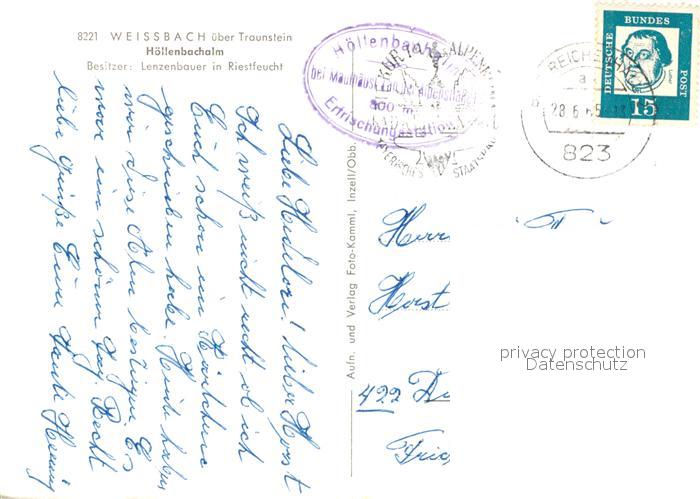 8221 WEISSBACH über Traunstein
Höllenbachalm
Besitzer: Lenzenbauer in Riestfeucht
Höllenbachalm
bei Mauthäusl
800 m
Erfrischungsstation
KURORT
ALPEN
BAYERISCHES
STAATSBAD
REICHENHALL
a
28.6.65
823
DEUTSCHE BUNDESPOST
15
Liebe Hidelore! Lieber Horst
Ich weiß nicht recht ob ich
Euch schon ein Kärtchen
geschrieben habe. Heute haben
wir diese Alm bestiegen. Es
war ein schöner Tag. Recht
liebe Grüße Eure Tante Henny
Aufn. und Verlag Foto-Kamml, Inzell/Obb.
Herr
Horst
422
privacy protection
Datenschutz